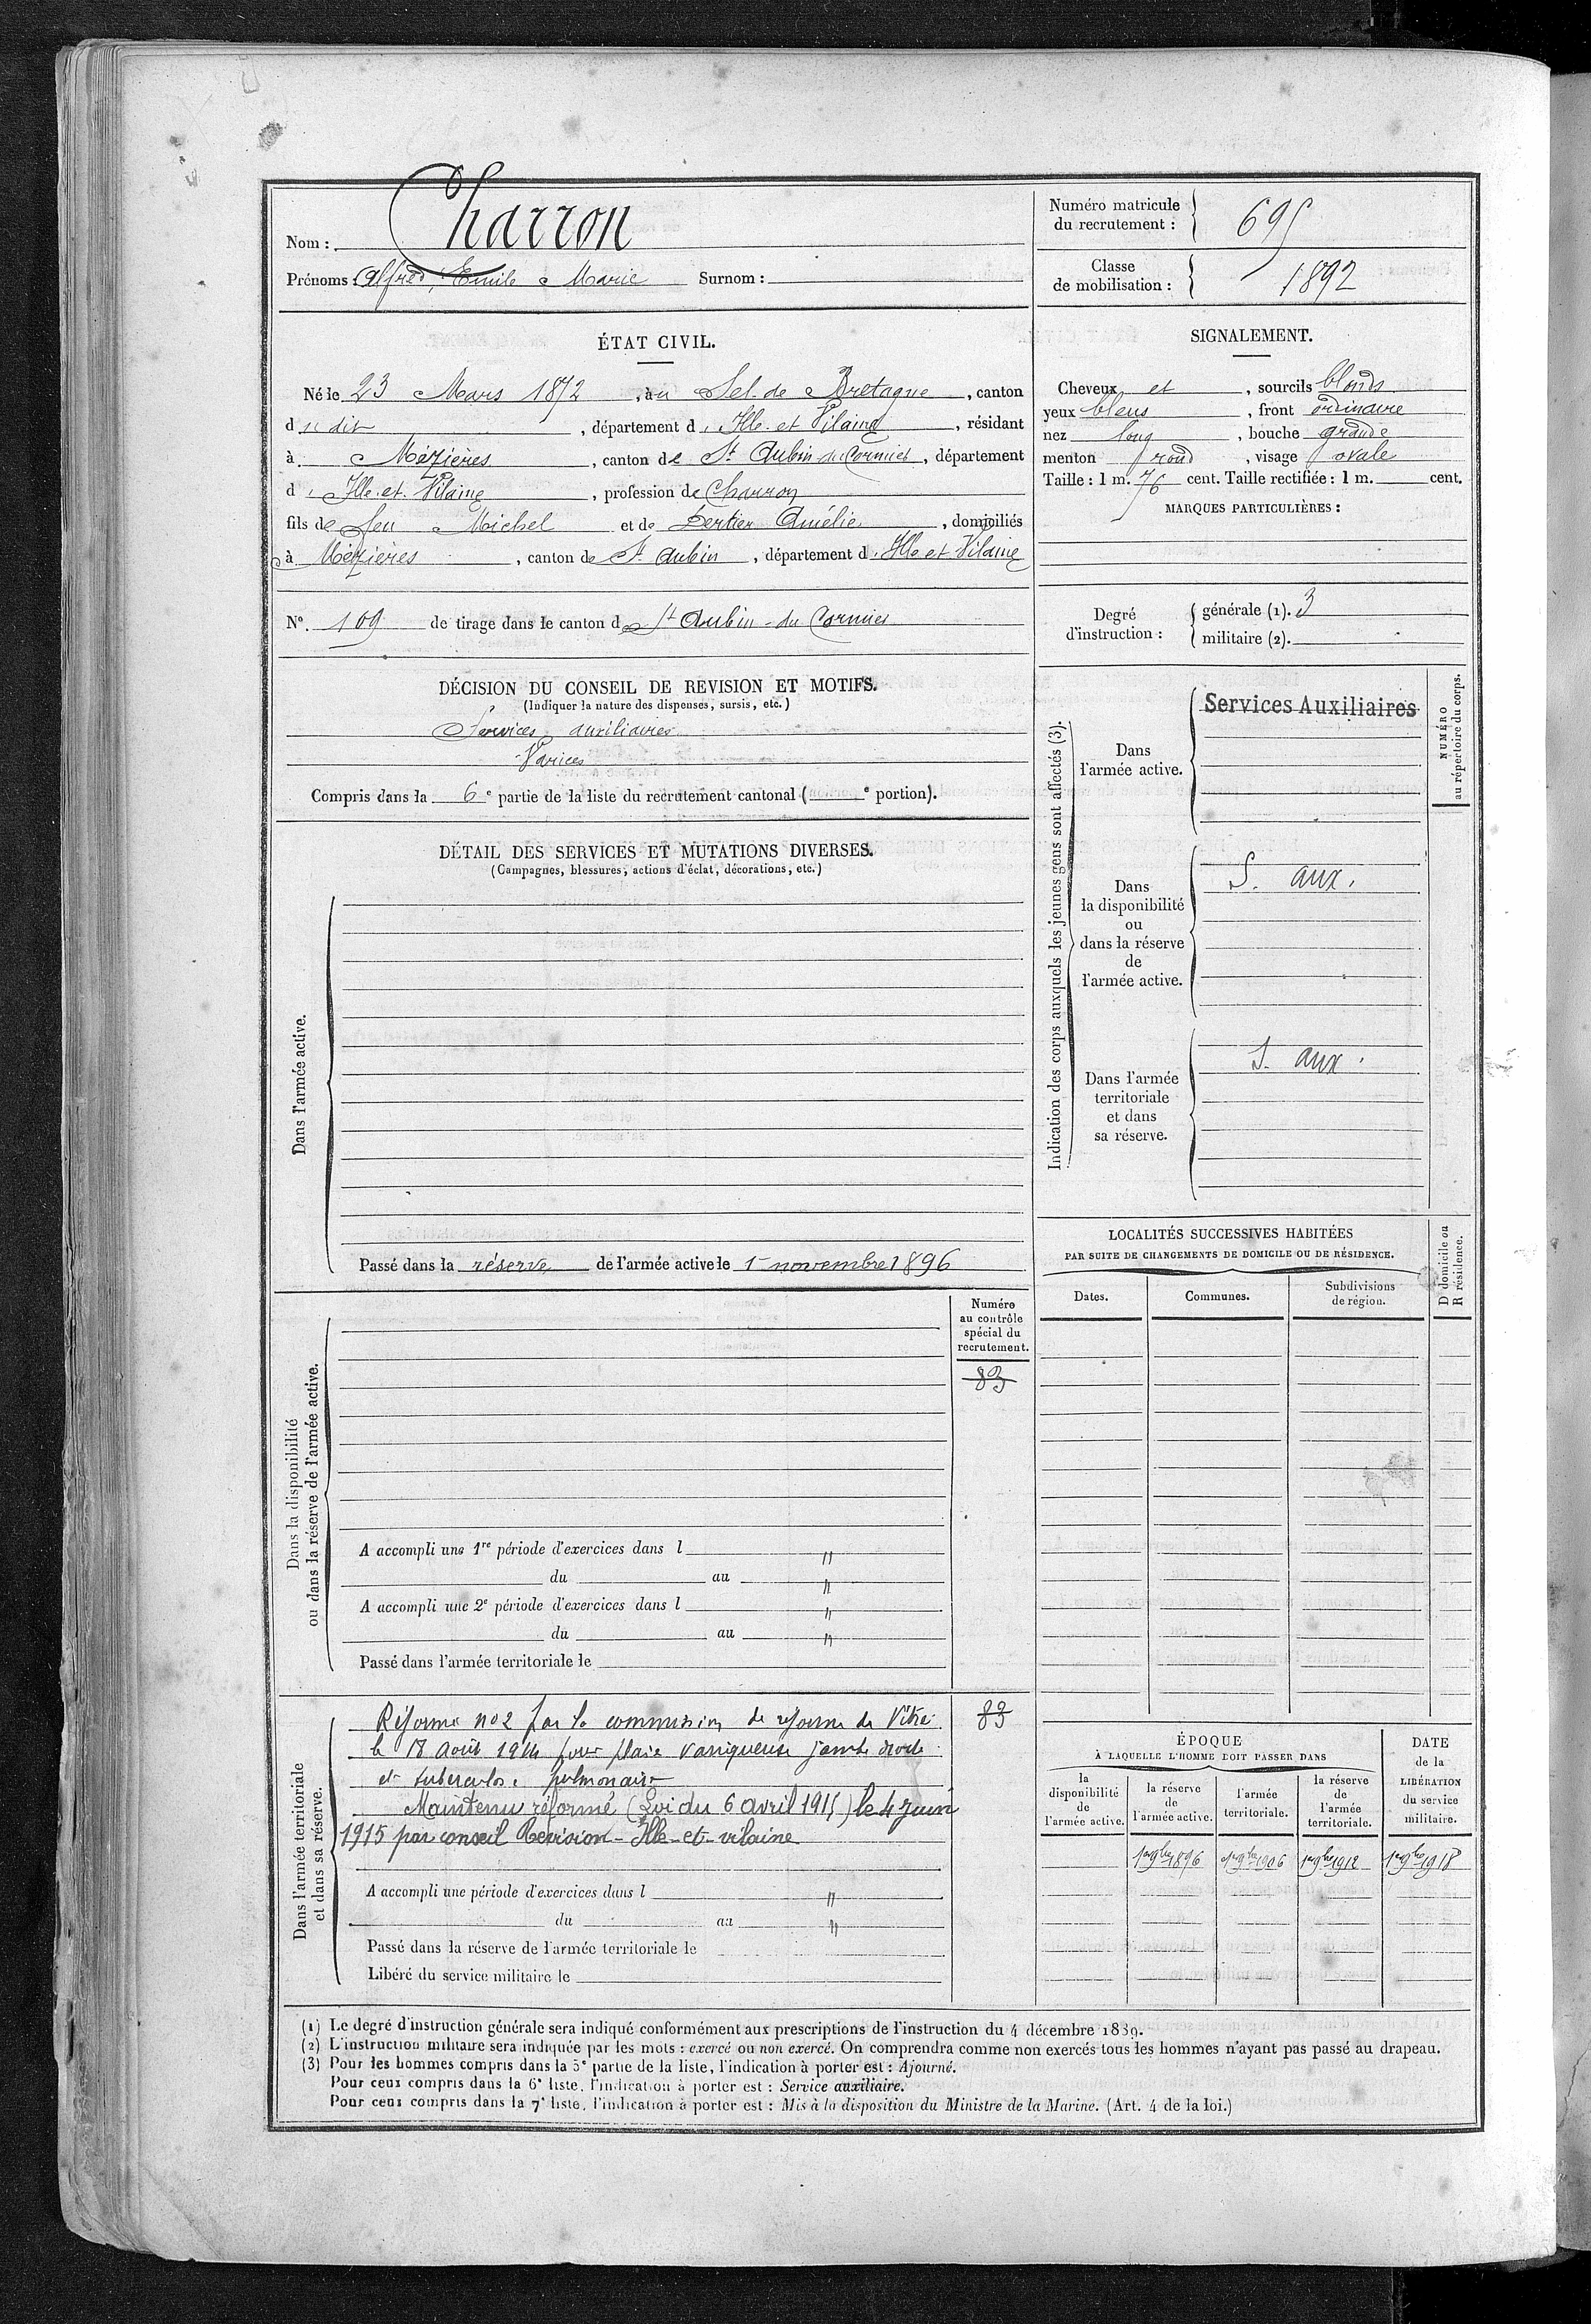 Nom : Charron
Prénoms : Alfred, Emile Marie Surnom :
Numéro matricule du recrutement : 695
Classe de mobilisation : 1892
ÉTAT CIVIL.
Né le 23 Mars 1872, à u Sel-de Bretagne, canton
d u dit, département d'Ille-et-Vilaine, résidant
à Mézières, canton de St Aubin du Cormier, département
d'Ille-et-Vilaine, profession de Charron
fils de feu Michel et de Amélie, domiciliés
à Mézières, canton de St Aubin, département d'Ille et Vilaine
N° 109 de tirage dans le canton de St Aubin-du Cormier
SIGNALEMENT.
Cheveux et, sourcils blonds
yeux bleus, front ordinaire
nez long, bouche grande
menton rond, visage ovale
Taille : 1 m. 76 cent. Taille rectifiée : 1 m. cent.
MARQUES PARTICULIÈRES :
Degré d'instruction : générale (1). 3
militaire (2).
DÉCISION DU CONSEIL DE REVISION ET MOTIFS.
(Indiquer la nature des dispenses, sursis, etc.)
Services auxiliaires
Varices
Compris dans la 6e partie de la liste du recrutement cantonal ( e portion).
DÉTAIL DES SERVICES ET MUTATIONS DIVERSES.
(Campagnes, blessures, actions d'éclat, décorations, etc.)
Dans l'armée active.
Passé dans la réserve de l'armée active le 1er novembre 1896
Indication des corps auxquels les jeunes gens sont affectés (3).
Dans l'armée active.
Services Auxiliaires
NUMÉRO au répertoire du corps.
Dans la disponibilité ou dans la réserve de l'armée active.
S. aux.
Dans l'armée territoriale et dans sa réserve.
S. aux.
LOCALITÉS SUCCESSIVES HABITÉES
PAR SUITE DE CHANGEMENTS DE DOMICILE OU DE RÉSIDENCE.
Dates. Communes. Subdivisions de région.
D domicile ou R résidence.
Dans la disponibilité ou dans la réserve de l'armée active.
Numéro au contrôle spécial du recrutement.
83
A accompli une 1re période d'exercices dans l "
du au "
A accompli une 2e période d'exercices dans l "
du au "
Passé dans l'armée territoriale le
Dans l'armée territoriale et dans sa réserve.
83
Réformé n° 2 par la commission de réforme de Vitré
le 18 Août 1914 pour plaie variqueuse jambe droite
et tuberculose pulmonaire
Maintenu réformé (Loi du 6 avril 1915) le 4 Juin
1915 par conseil Revision - Ille-et-vilaine
A accompli une période d'exercices dans l "
du au "
Passé dans la réserve de l'armée territoriale le
Libéré du service militaire le
ÉPOQUE
À LAQUELLE L'HOMME DOIT PASSER DANS
la disponibilité de l'armée active.
la réserve de l'armée active.
l'armée territoriale.
la réserve de l'armée territoriale.
DATE de la LIBÉRATION du service militaire.
1er 9bre 1896 1er 9bre 1906 1er 9bre 1912 1er 9bre 1918
(1) Le degré d'instruction générale sera indiqué conformément aux prescriptions de l'instruction du 4 décembre 1889.
(2) L'instruction militaire sera indiquée par les mots : exercé ou non exercé. On comprendra comme non exercés tous les hommes n'ayant pas passé au drapeau.
(3) Pour les hommes compris dans la 5e partie de la liste, l'indication à porter est : Ajourné.
Pour ceux compris dans la 6e liste, l'indication à porter est : Service auxiliaire.
Pour ceux compris dans la 7e liste, l'indication à porter est : Mis à la disposition du Ministre de la Marine. (Art. 4 de la loi.)